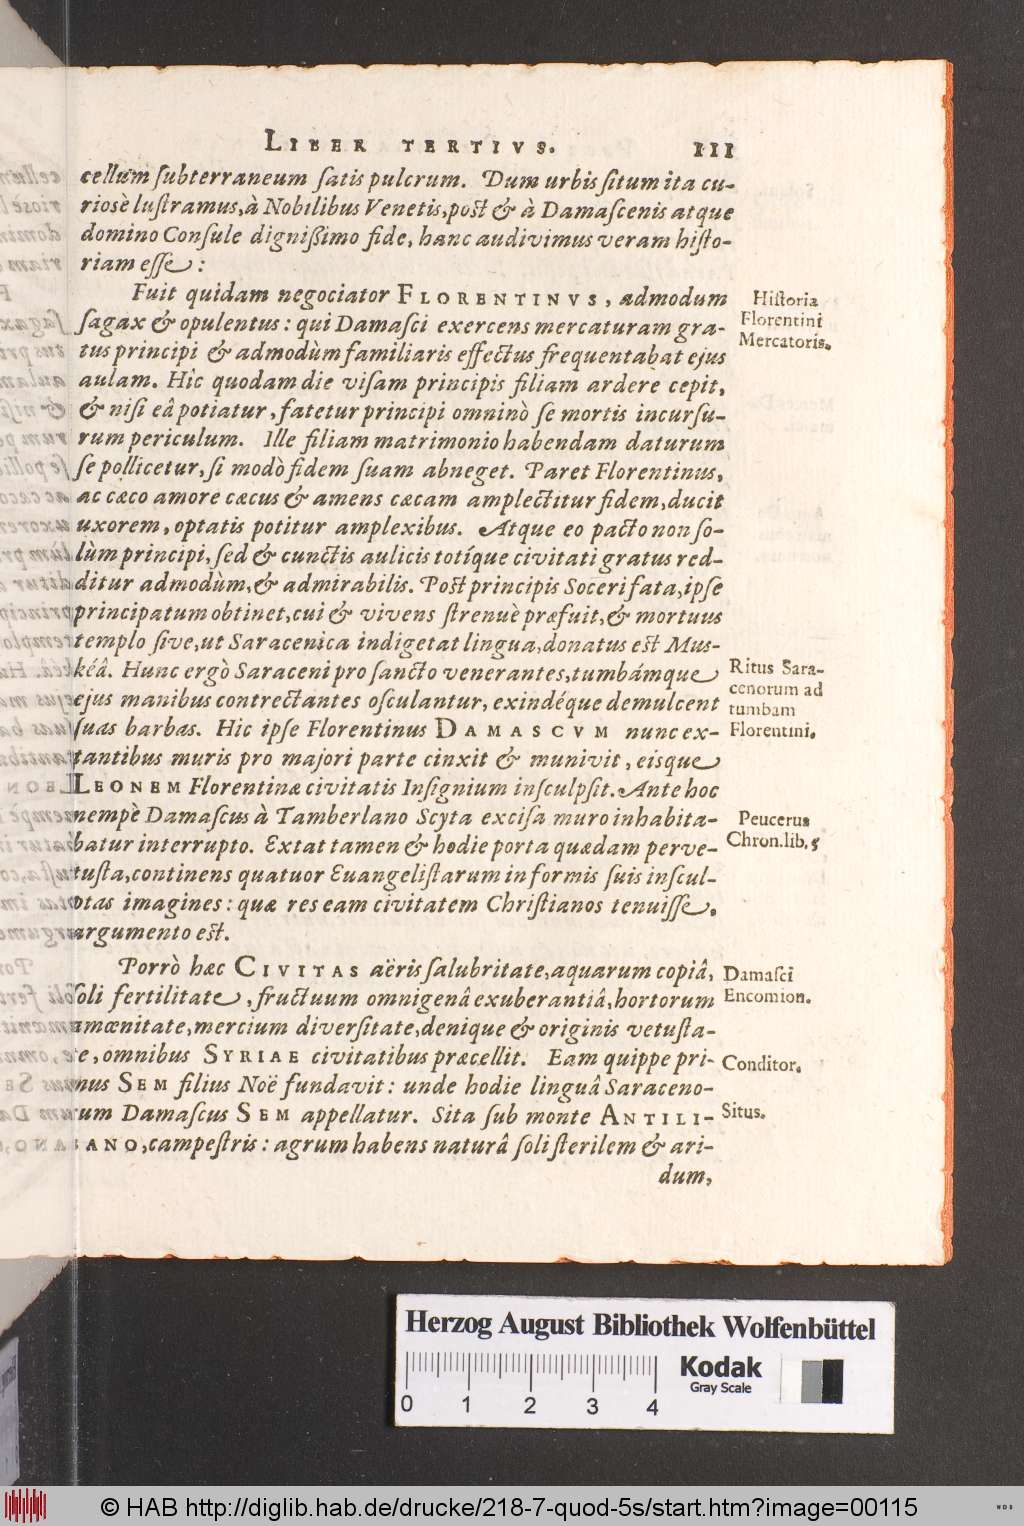 LIBER TERTIVS. 111
cellum subterraneum satis pulcrum. Dum urbis situm ita cu-
riosè lustramus, à Nobilibus Venetis, post & à Damascenis atque
domino Consule dignißimo fide, hanc audivimus veram histo-
riam esse:
Fuit quidam negociator FLORENTINVS, admodum
sagax & opulentus: qui Damasci exercens mercaturam gra-
tus principi & admodùm familiaris effectus frequentabat ejus
aulam. Hic quodam die visam principis filiam ardere cepit,
& nisi eâ potiatur, fatetur principi omninò se mortis incursu-
rum periculum. Ille filiam matrimonio habendam daturum
se pollicetur, si modò fidem suam abneget. Paret Florentinus,
ac cæco amore cæcus & amens cæcam amplectitur fidem, ducit
uxorem, optatis potitur amplexibus. Atque eo pacto non so-
lùm principi, sed & cunctis aulicis totíque civitati gratus red-
ditur admodùm, & admirabilis. Post principis Soceri fata, ipse
principatum obtinet, cui & vivens strenuè præfuit, & mortuus
templo sive, ut Saracenica indigetat lingua, donatus est Mus-
kéâ. Hunc ergò Saraceni pro sancto venerantes, tumbámque
ejus manibus contrectantes osculantur, exindéque demulcent
suas barbas. Hic ipse Florentinus DAMASCVM nunc ex-
tantibus muris pro majori parte cinxit & munivit, eisque
LEONEM Florentinæ civitatis Insignium insculpsit. Ante hoc
nempè Damascus à Tamberlano Scyta excisa muro inhabita-
batur interrupto. Extat tamen & hodie porta quædam perve-
tusta, continens quatuor Euangelistarum in formis suis inscul-
ptas imagines: quæ res eam civitatem Christianos tenuisse,
argumento est.
Porrò hæc CIVITAS aëris salubritate, aquarum copiâ,
soli fertilitate, fructuum omnigenâ exuberantiâ, hortorum
amœnitate, mercium diversitate, denique & originis vetusta-
te, omnibus SYRIAE civitatibus præcellit. Eam quippe pri-
mus SEM filius Noë fundavit: unde hodie linguâ Saraceno-
rum Damascus SEM appellatur. Sita sub monte ANTILI-
BANO, campestris: agrum habens naturâ soli sterilem & ari-
dum,
Historia
Florentini
Mercatoris.
Ritus Sara-
cenorum ad
tumbam
Florentini.
Peucerus
Chron.lib.5
Damasci
Encomion.
Conditor.
Situs.
Herzog August Bibliothek Wolfenbüttel
Kodak
Gray Scale
0 1 2 3 4
© HAB http://diglib.hab.de/drucke/218-7-quod-5s/start.htm?image=00115